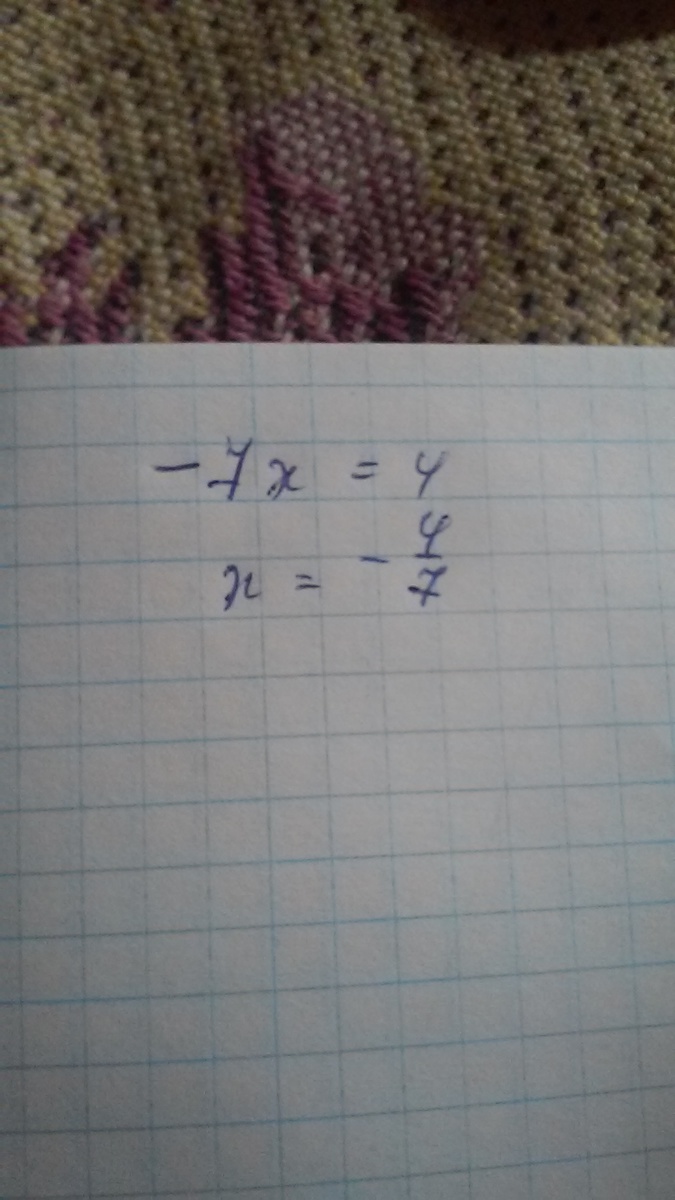 -7x = 4
x = -4/7